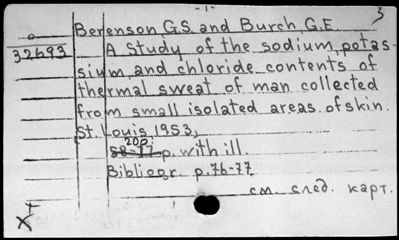 -1-
3
Berenson G.S. and Burch G.E
32693
A study of the sodium, potas-
sium, and chloride contents of
thermal sweat of man collected
from small isolated areas of skin.
St. Louis, 1953,
20p.
58-77 p. with ill.
Bibliogr. p.76-77
см. след. карт.